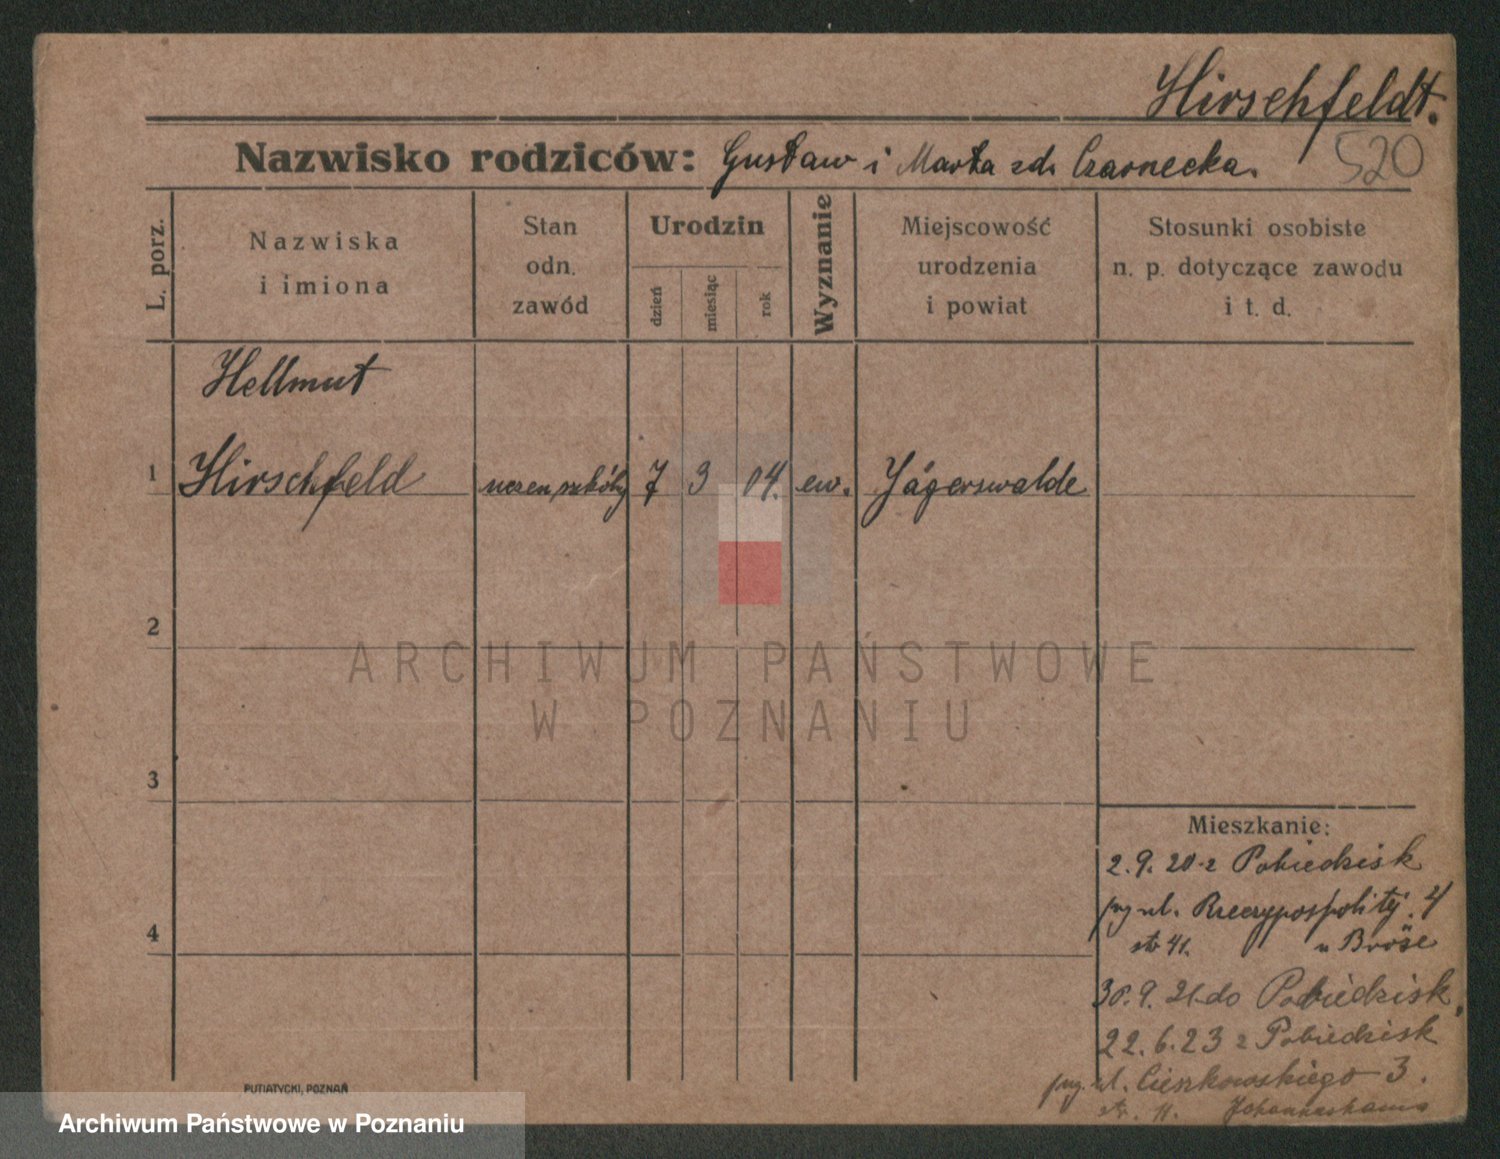 Hirschfeldt.
Nazwisko rodziców: Gustaw i Marta zd. Czarnecka.
520
L. porz.
Nazwiska
i imiona
Stan
odn.
zawód
Urodzin
dzień
miesiąc
rok
Wyznanie
Miejscowość
urodzenia
i powiat
Stosunki osobiste
n. p. dotyczące zawodu
i t. d.
Hellmut
1 Hirschfeld uczen szkóły 7 3 04. ew. Jägerswalde
2
ARCHIWUM PAŃSTWOWE
W POZNANIU
3
Mieszkanie:
2. 9. 20 z Pobiedzisk
ul. Rzeczypospolitej. 4
4
str 41. u Bröse
30. 9. 21 do Pobiedzisk.
22. 6. 23 z Pobiedzisk
ul. Cieszkowskiego 3.
str. 11.
PUTIATYCKI, POZNAŃ
Archiwum Państwowe w Poznaniu